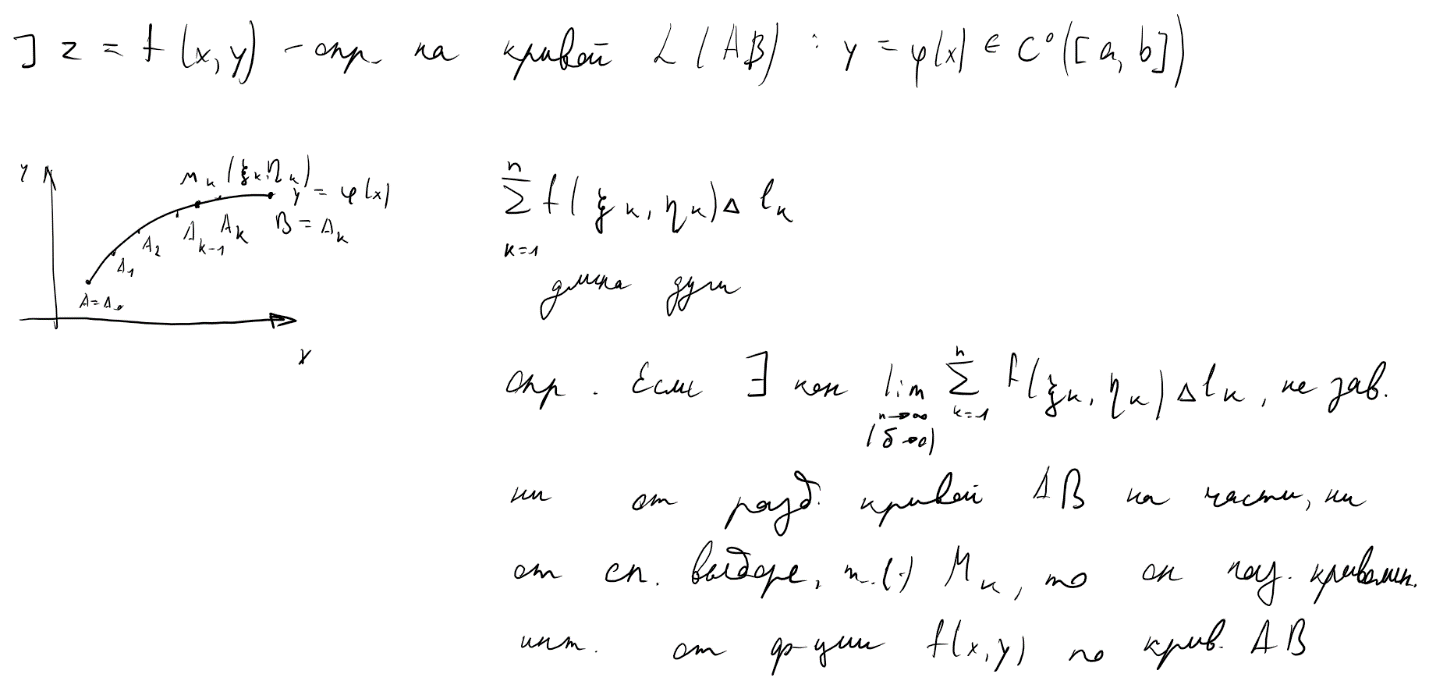 ] z = f(x, y) - опр. на кривой L(AB) : y = φ(x) ∈ C⁰([a, b])
y
M_k (ξ_k, η_k)
y = φ(x)
A_k-1 A_k B = A_k
A_2
A_1
A = A_0
x
∑_{k=1}^{n} f(ξ_k, η_k) Δ l_k
длина дуги
опр. Если ∃ кон lim_{n→∞ (δ→0)} ∑_{k=1}^{n} f(ξ_k, η_k) Δ l_k, не зав.
ни от разб. кривой AB на части, ни
от сп. выборе, т.(·) M_k, то он наз. криволин.
инт. от ф-уии f(x, y) по крив. AB